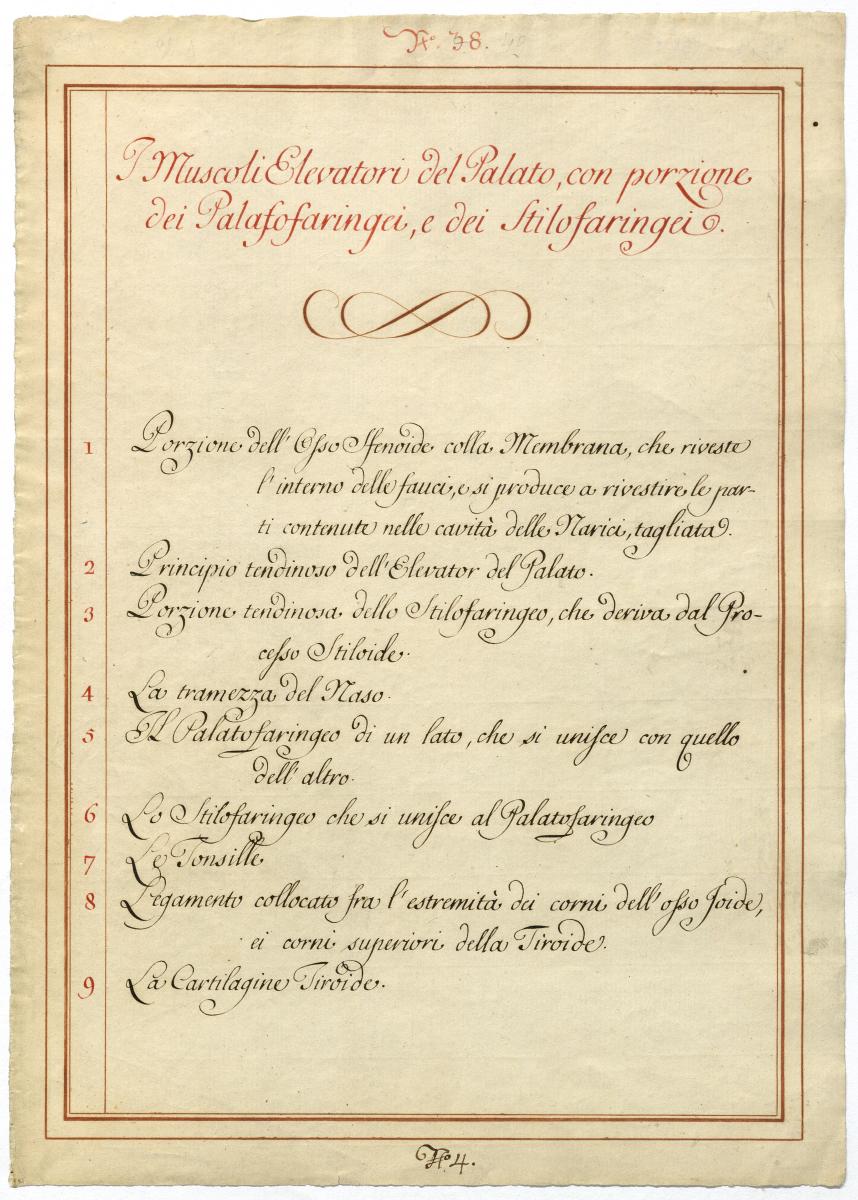 No. 38.
I Muscoli Elevatori del Palato, con porzione
dei Palatofaringei, e dei Stilofaringei.
1 Porzione dell' Osso Sfenoide colla Membrana, che riveste
l'interno delle fauci, e si produce a rivestire le par-
ti contenute nelle cavità delle Narici, tagliata.
2 Principio tendinoso dell' Elevator del Palato.
3 Porzione tendinosa dello Stilofaringeo, che deriva dal Pro-
cesso Stiloide.
4 La tramezza del Naso.
5 Il Palatofaringeo di un lato, che si unisce con quello
dell' altro.
6 Lo Stilofaringeo che si unisce al Palatofaringeo
7 Le Tonsille
8 Legamento collocato fra l'estremità dei corni dell' osso Joide,
ei corni superiori della Tiroide.
9 La Cartilagine Tiroide.
No. 4.